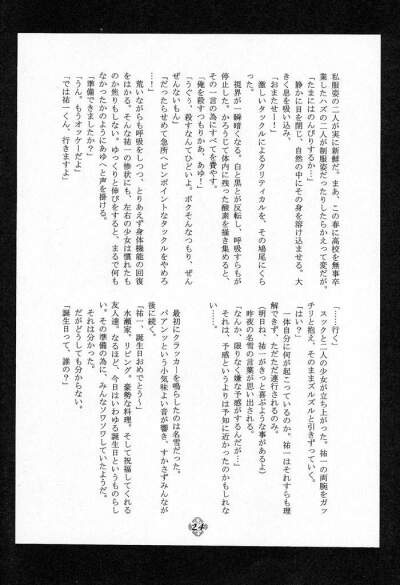 私服姿の二人が実に新鮮だ。まあ、この春に高校を無事卒
業したハズの二人が制服姿だったりしたらかえって変だが。
「たまにはのんびりするか…」
静かに目を閉じ、自然の中にその身を溶け込ませる。大
きく息を吸い込み、
「おまたせー！」
激しいタックルによるクリティカルを、その鳩尾にくら
った。
視界が一瞬暗くなる。白と黒とが反転し、呼吸すらもが
停止した。かろうじて体内に残った酸素を掻き集めると、
その一言の為にすべてを費やす。
「俺を殺すつもりかあ、あゆ！」
「うぐぅ、殺すなんてひどいよ。ボクそんなつもり、ぜん
ぜんないもん」
「だったらせめて急所へピンポイントなタックルをやめろ
…！」
荒いながらも呼吸をしつつ、とりあえず身体機能の回復
をはかる。そんな祐一の惨状にも、左右の少女は慣れたも
のか焦りもしない。ゆっくりと伸びをすると、まるで何も
なかったかのようにあゆへと声を掛ける。
「準備できましたか？」
「うん。もうオッケーだよ」
「では祐一くん、行きますよ」
「……行く」
スックと二人の少女が立ち上がった。祐一の両腕をガッ
チリと抱え、そのままズルズルと引きずっていく。
「はい？」
一体自分に何が起こっているのか、祐一はそれすらも理
解できず、ただただ連行されるのみ。
（明日ね、祐一がきっと喜ぶような事があるよ）
昨夜の名雪の言葉が思い出される。
「なんか、限りなく嫌な予感がするんだが…」
それは、予感というよりは予知に近いのかもしれな
い……。
最初にクラッカーを鳴らしたのは名雪だった。
パアンッという小気味よい音が響き、すかさずみんなが
後に続く。
「祐一、誕生日おめでとう！」
水瀬家、リビング。豪勢な料理。そして祝福してくれる
友人達。なるほど、今日はいわゆる誕生日というものらし
い。その準備の為に、みんなソワソワしていたようだ。
それは分かった。
だがどうしても分からない。
「誕生日って、誰の？」
24